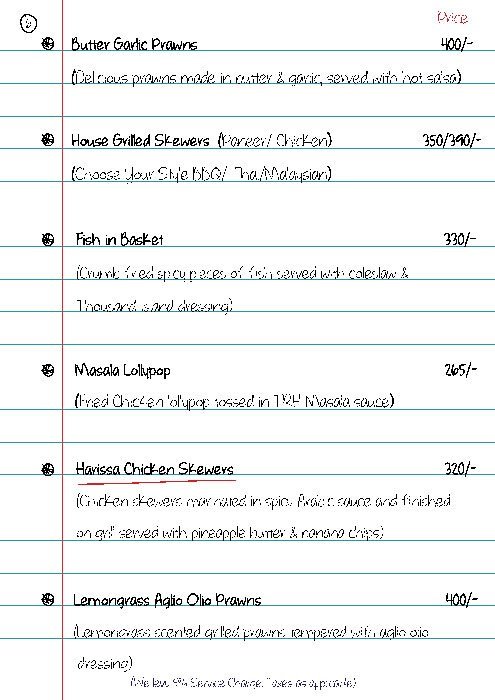 6
Price
Butter Garlic Prawns 400/-
(Delicious prawns made in butter & garlic, served with hot salsa)
House Grilled Skewers (Paneer/ Chicken) 350/390/-
(Choose Your Style BBQ/ Thai/Malaysian)
Fish in Basket 330/-
(Crumb fried spicy pieces of fish served with coleslaw &
Thousand island dressing)
Masala Lollypop 265/-
(Fried Chicken lollypop tossed in Masala sauce)
Harissa Chicken Skewers 320/-
(Chicken skewers marinated in spicy Arabic sauce and finished
on grill served with pineapple butter & banana chips)
Lemongrass Aglio Olio Prawns 400/-
(Lemongrass scented grilled prawns tempered with aglio olio
dressing)
(We levy Service Charge. Taxes as applicable)